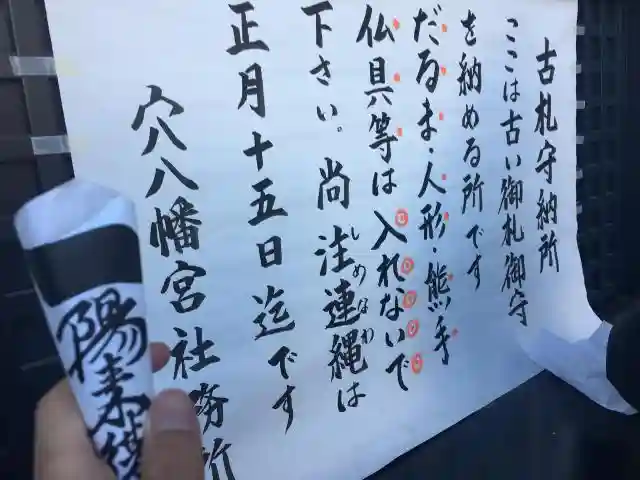 古札守納所
ここは古い御札御守
を納める所です
だるま・人形・熊手
仏具等は入れないで
下さい。尚注連縄は
しめなわ
正月十五日迄です
穴八幡宮社務所
陽来